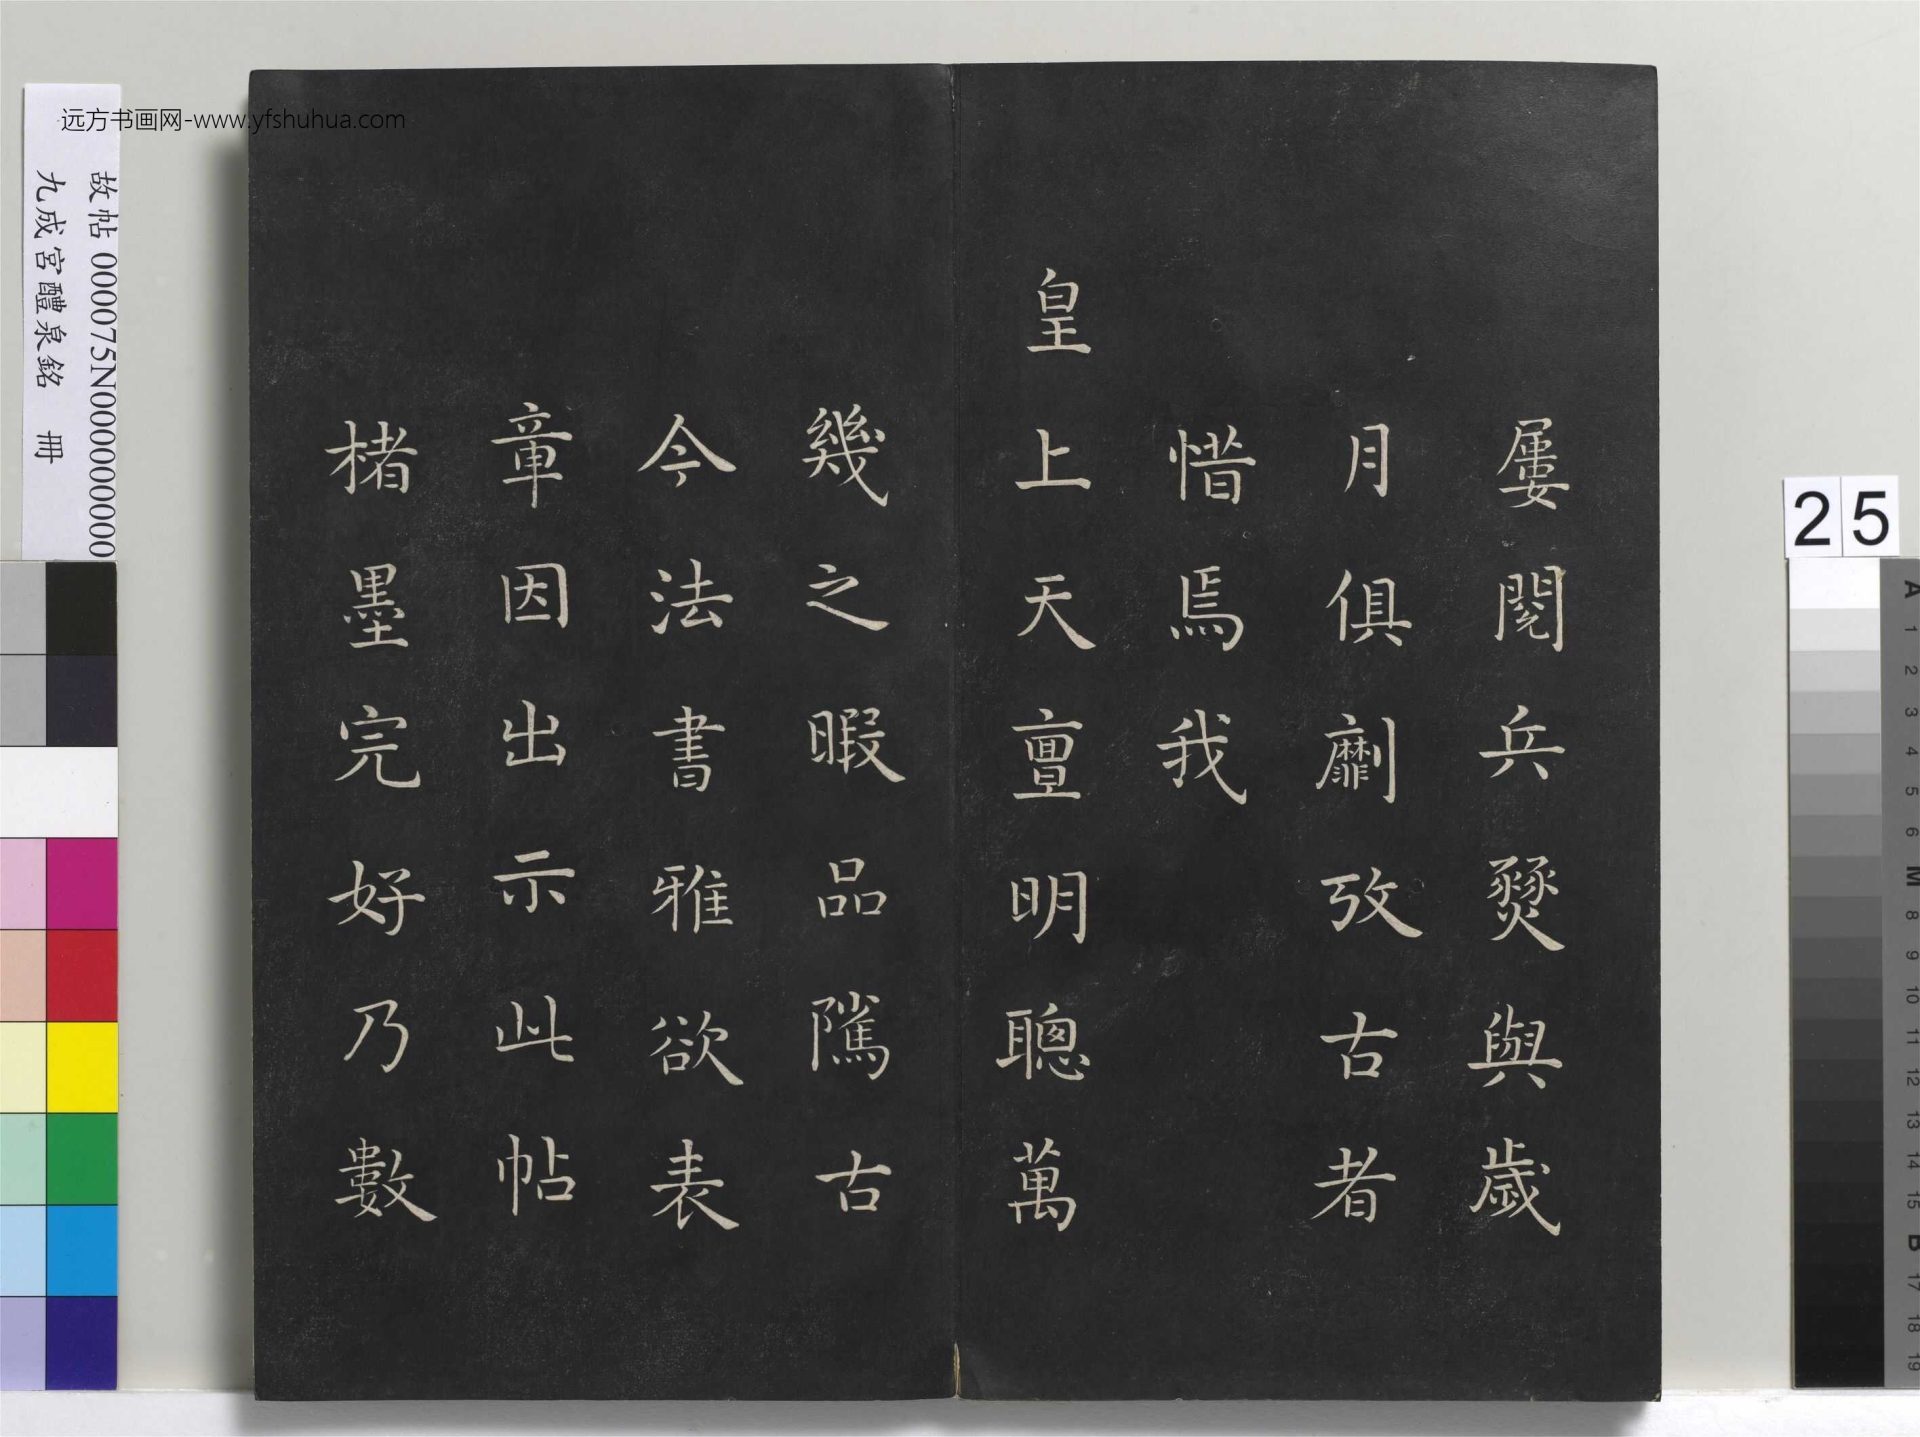 屢閱兵燹與歲
月俱劘攷古者
惜焉我
皇上天亶明聰萬
幾之暇品隲古
今法書雅欲表
章因出示此帖
楮墨完好乃數
远方书画网-www.yfshuhua.com
故帖 000075N000000000
九成宮醴泉銘 冊
25
A
1
2
3
4
5
6
M
8
9
10
11
12
13
14
15
B
17
18
19